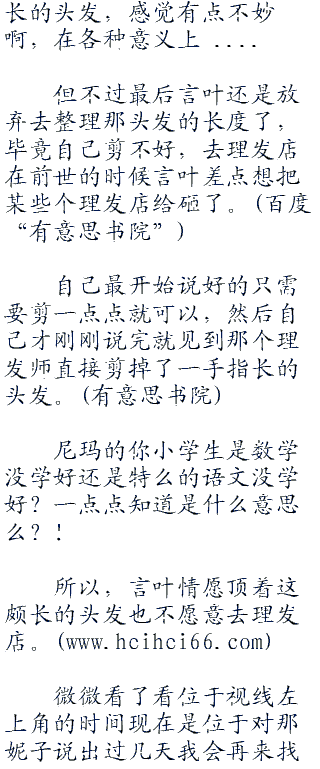 长的头发，感觉有点不妙
啊，在各种意义上 ....
但不过最后言叶还是放
弃去整理那头发的长度了，
毕竟自己剪不好，去理发店
在前世的时候言叶差点想把
某些个理发店给砸了。(百度
“有意思书院”)
自己最开始说好的只需
要剪一点点就可以，然后自
己才刚刚说完就见到那个理
发师直接剪掉了一手指长的
头发。(有意思书院)
尼玛的你小学生是数学
没学好还是特么的语文没学
好？一点点知道是什么意思
么？！
所以，言叶情愿顶着这
颇长的头发也不愿意去理发
店。(www.hcihci66.com)
微微看了看位于视线左
上角的时间现在是位于对那
妮子说出过几天我会再来找